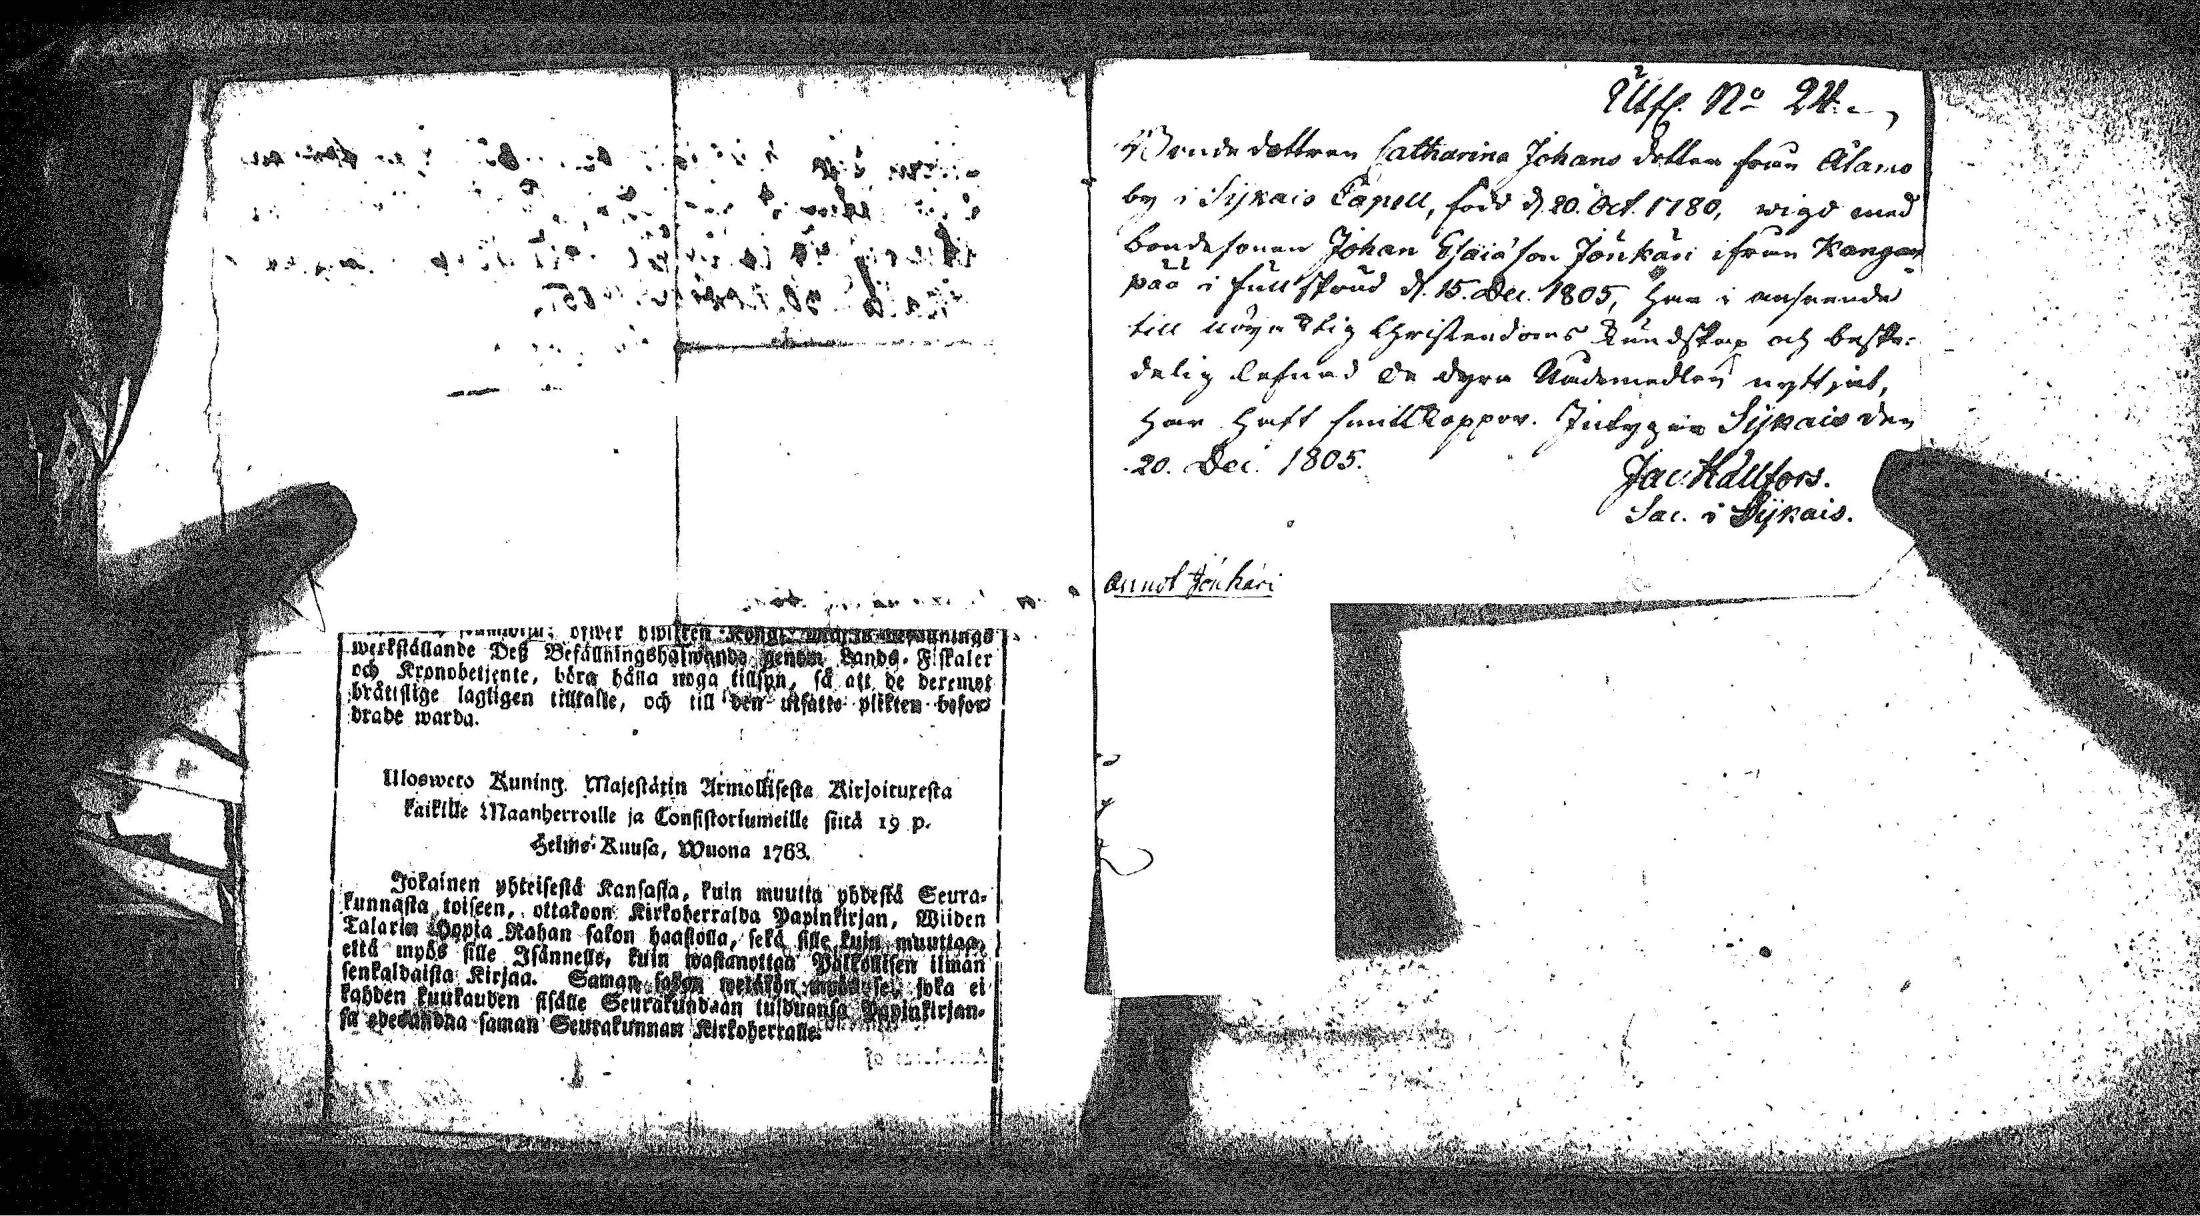 werkställande Deß Befällningshafwande genom Lands-Fiskaler
och Kronobetjente, böra hålla noga tillsyn, så att de deremot
bråtslige lagligen tilltalte, och till den utsatte plikten befor-
drade warda.
Uloswero Kuning. Majestätin Armollisesta Kirjoituxesta
kaikille Maanherroille ja Consistoriumeille siitä 19 p.
Helme-Kuusa, Wuona 1763.
Jokainen yhteisestä Kansasta, kuin muutta yhdestä Seura-
kunnasta toiseen, ottakoon Kirkoherralda Papinkirjan, Wiiden
Talarin Hopia Rahan sakon haastolla, sekä sille kuin muuttaa,
että myös sille Isännelle, kuin wastanottaa Palkollisen ilman
senkaldaista Kirjaa. Saman sakon wetäkön myös se, joka ei
kahden kuukauden sisälle Seurakundaan tulduansa Papinkirjan-
sa edesandaa saman Seurakunnan Kirkoherralle.
Utfl. No 24.
Bondedottren Catharina Johans dotter från Alamo
by i Sijkais Capell, född d. 20. Oct. 1780, wigd med
bondesonen Johan Esaiæson Jonkari ifrån Kangan
pää i full skrud d. 15. Dec. 1805, har i anseende
till nöjaktig Christendoms Kundskap och beske-
delig lefnad de dyra Nådemedlen nyttjat,
har haft smittkoppor. Intygar Sijkais den
20. Dec. 1805.
Jac. Hållfors.
Sac. i Sijkais.
Annot Jonkari